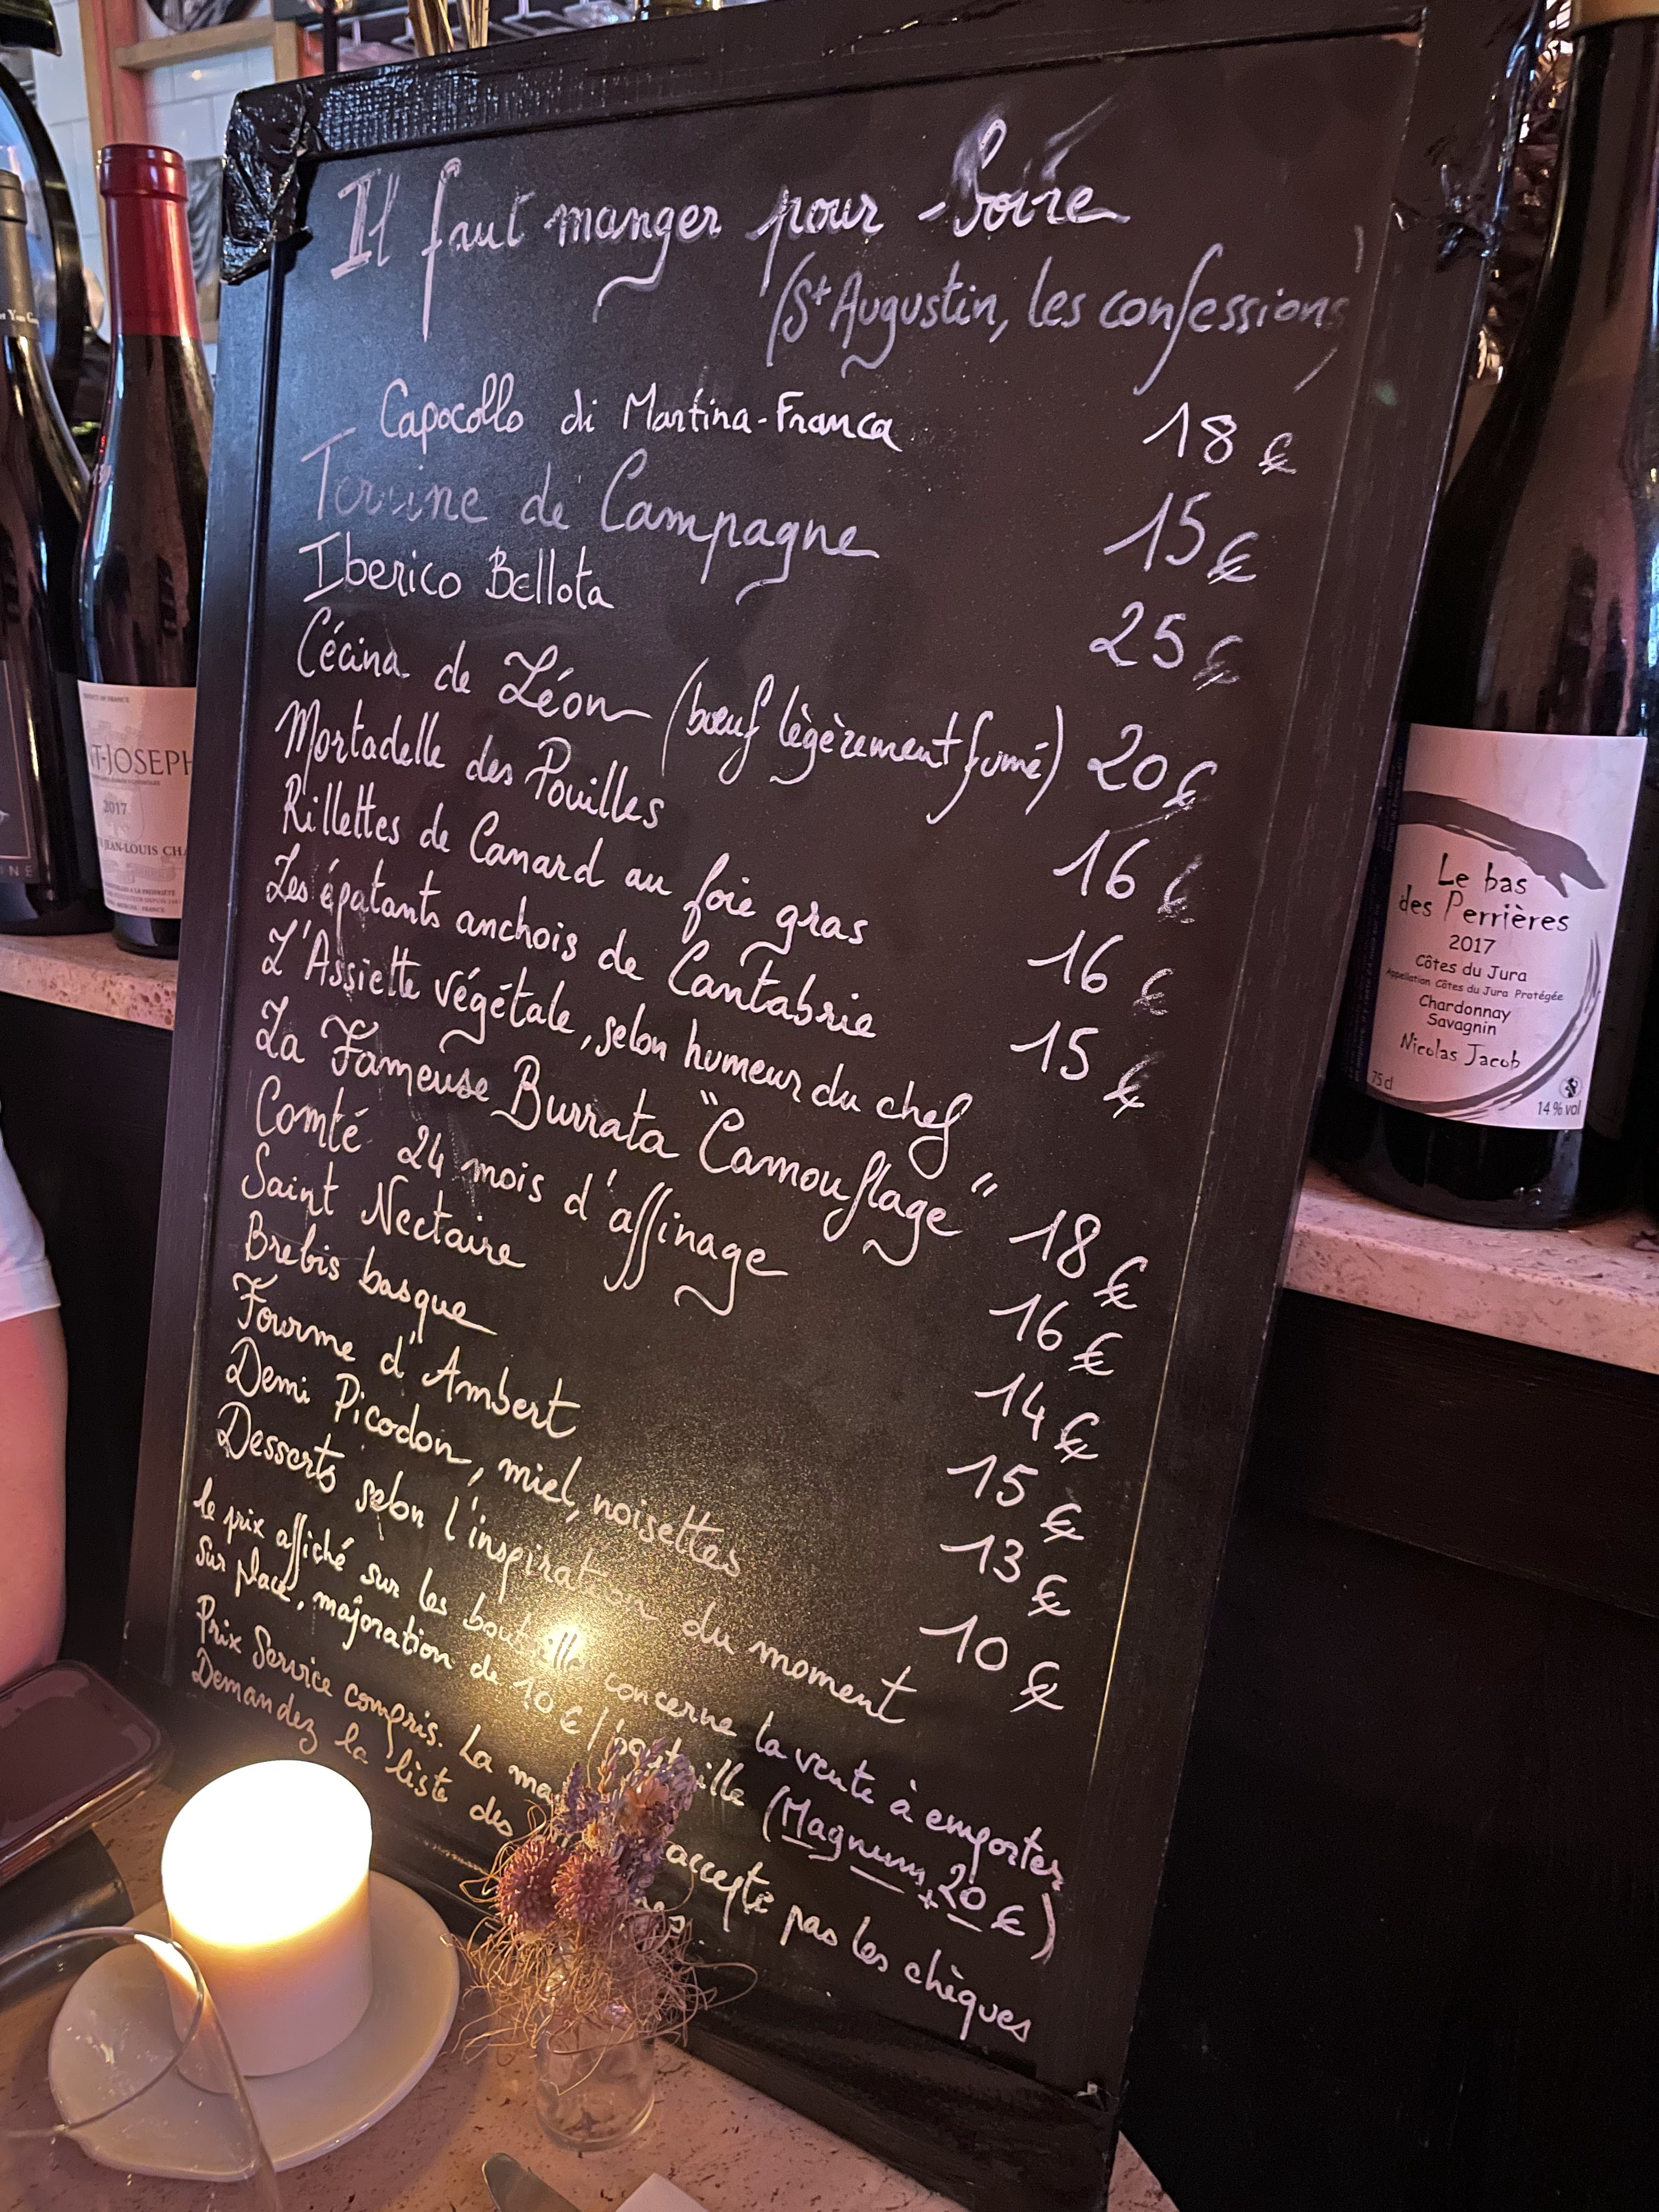 Il faut manger pour boire
(St Augustin, les confessions)
Capocollo di Martina-Franca 18 €
Terrine de Campagne 15 €
Iberico Bellota 25 €
Cécina de Léon (bœuf légèrement fumé) 20 €
Mortadelle des Pouilles 16 €
Rillettes de Canard au foie gras 16 €
Les épatants anchois de Cantabrie 15 €
L'Assiette végétale, selon humeur du chef
La Fameuse Burrata "Camouflage" 18 €
Comté 24 mois d'affinage 16 €
Saint Nectaire 14 €
Brebis basque 15 €
Fourme d'Ambert 13 €
Demi Picodon, miel, noisettes 10 €
Desserts selon l'inspiration du moment
le prix affiché sur les bouteilles concerne la vente à emporter
Sur place, majoration de 10 € / bouteille (Magnum + 20 €)
Prix Service compris. La accepte pas les chèques
Demandez la liste des
T-JOSEPH
2017
JEAN-LOUIS CHA
Le bas
des Perrières
2017
Côtes du Jura
Appellation Côtes du Jura Protégée
Chardonnay
Savagnin
Nicolas Jacob
75 cl
14 % vol